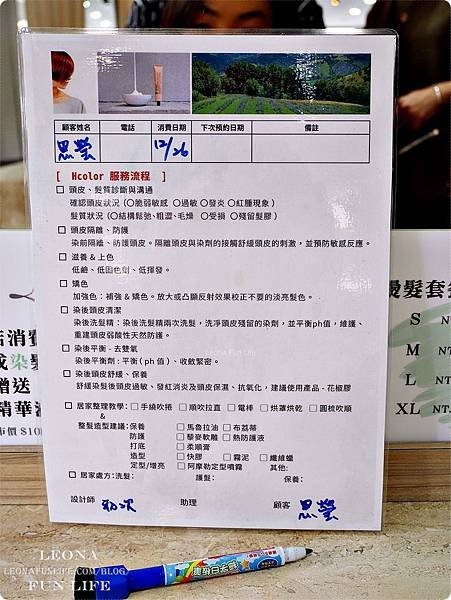 顧客姓名 電話 消費日期 下次預約日期 備註
思瑩 12/26
[ Hcolor 服務流程 ]
□ 頭皮、髮質診斷與溝通
確認頭皮狀況(○脆弱敏感 ○過敏 ○發炎 ○紅腫現象)
髮質狀況(○結構鬆弛、粗澀、毛燥 ○受損 ○殘留髮膠)
□ 頭皮隔離、防護
染前隔離、防護頭皮。隔離頭皮與染劑的接觸舒緩頭皮的刺激,並預防敏感反應。
□ 滋養 & 上色
低鹼、低固色劑、低揮發。
□ 矯色
加強色:補強 & 矯色。放大或凸顯反射效果校正不要的淡亮髮色。
□ 染後頭皮清潔
染後洗髮精:染後洗髮精兩次洗髮,洗淨頭皮殘留的染劑,並平衡ph值,維護、
重建頭皮弱酸性天然防護。
□ 染後平衡-去雙氧
染後平衡劑:平衡(ph值)、收斂緊密。
□ 染後頭皮舒緩、保養
舒緩染髮後頭皮過敏、發紅消炎及頭皮保濕、抗氧化,建議使用產品-花椒膠
□ 居家整理教學:□ 手繞吹捲 □ 順吹拉直 □ 電棒 □ 烘罩烘乾 □ 圓梳吹順
&
整髮造型建議:保養 □ 馬魯拉油 □ 布荔蒂
防護 □ 藜麥軟雕 □ 熱防護液
打底 □ 柔順膏
造型 □ 快膠 □ 霧泥 □ 纖維蠟
定型/增亮 □ 阿摩勒定型噴霧 其他:
□ 居家處方:洗髮: 護髮: 保養:
設計師 初次 助理 顧客 思瑩
燙髮套
S NT
M NT
L NT
XL NT.
消費
染髮
贈送
精華
市價 $10
Leona Fun Life
LEONA
LEONAFUNLIFE.COM/BLOG
FUN LIFE